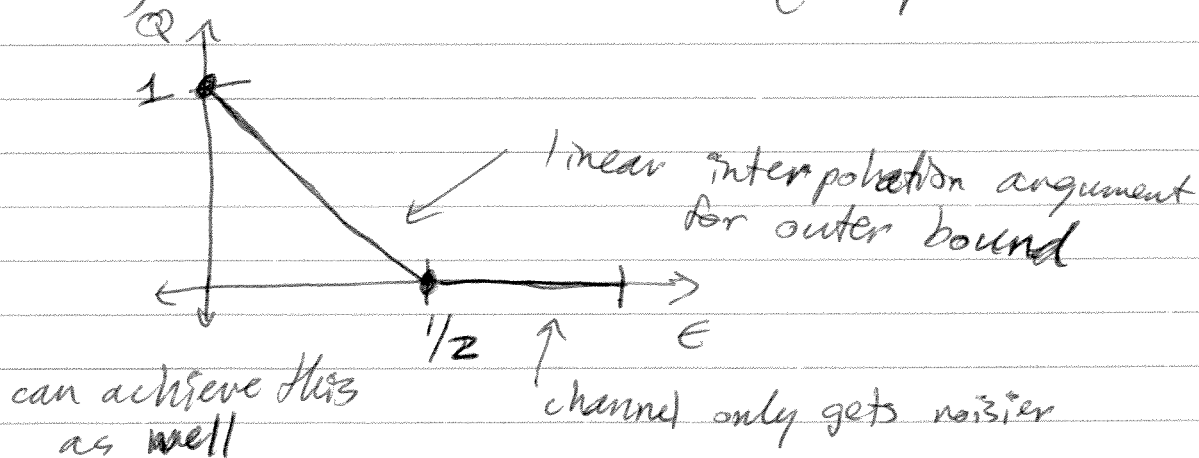 Q
1
linear interpolation argument
for outer bound
1/2
ε
can achieve this
channel only gets noisier
as well